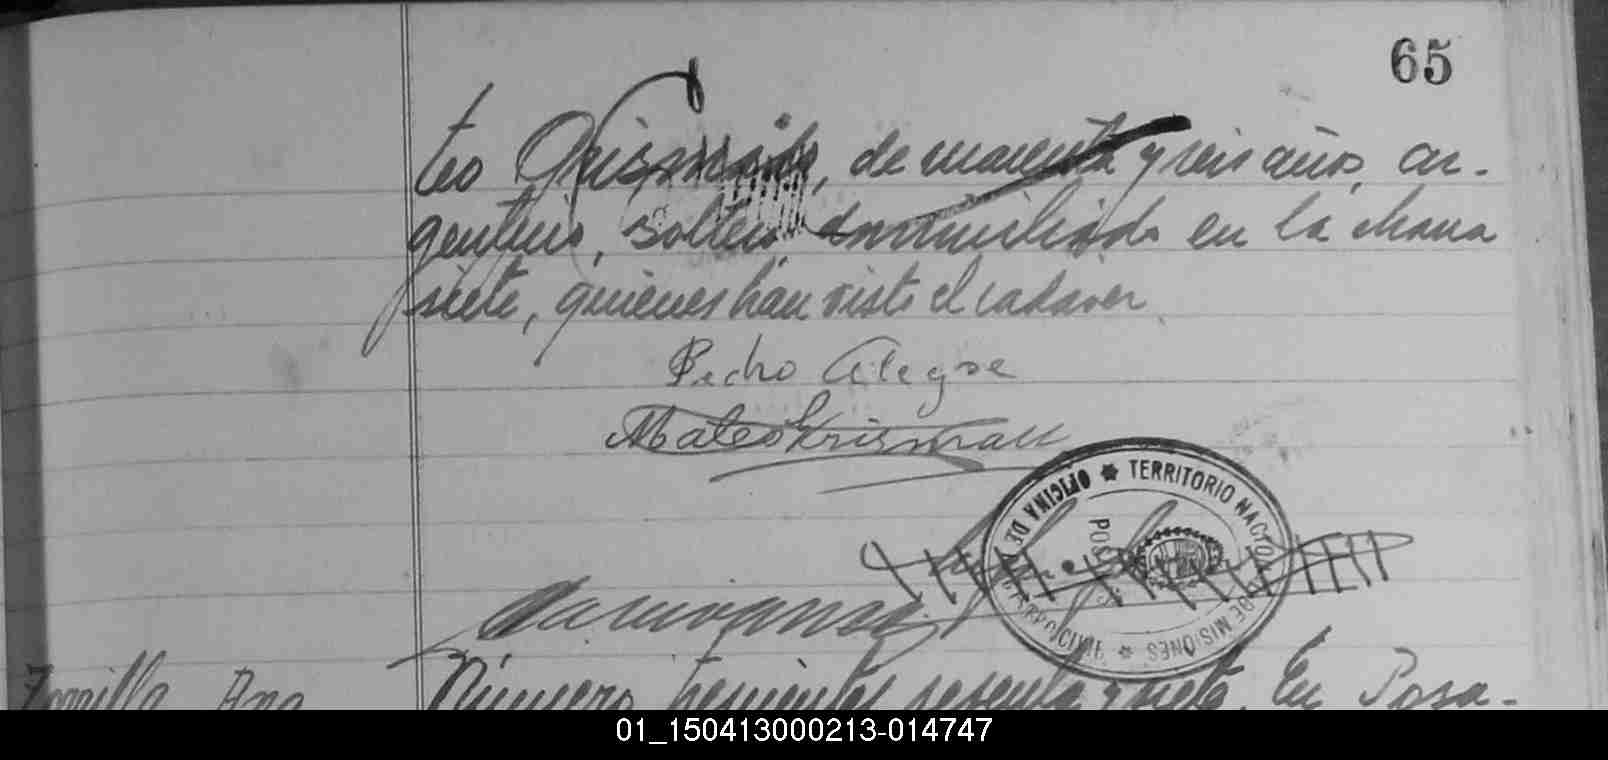 65
teo Krisman, de cuarenta y seis años, ar-
gentino, soltero, domiciliado en la chacra
siete, quienes han visto el cadaver
Pedro Alegre
Mateo Krisman
OFICINA DE REGISTRO CIVIL * TERRITORIO NACIONAL DE MISIONES *
POSADAS
Zorrilla Ana
Número trescientos sesenta y siete. En Posa-
01_150413000213-014747